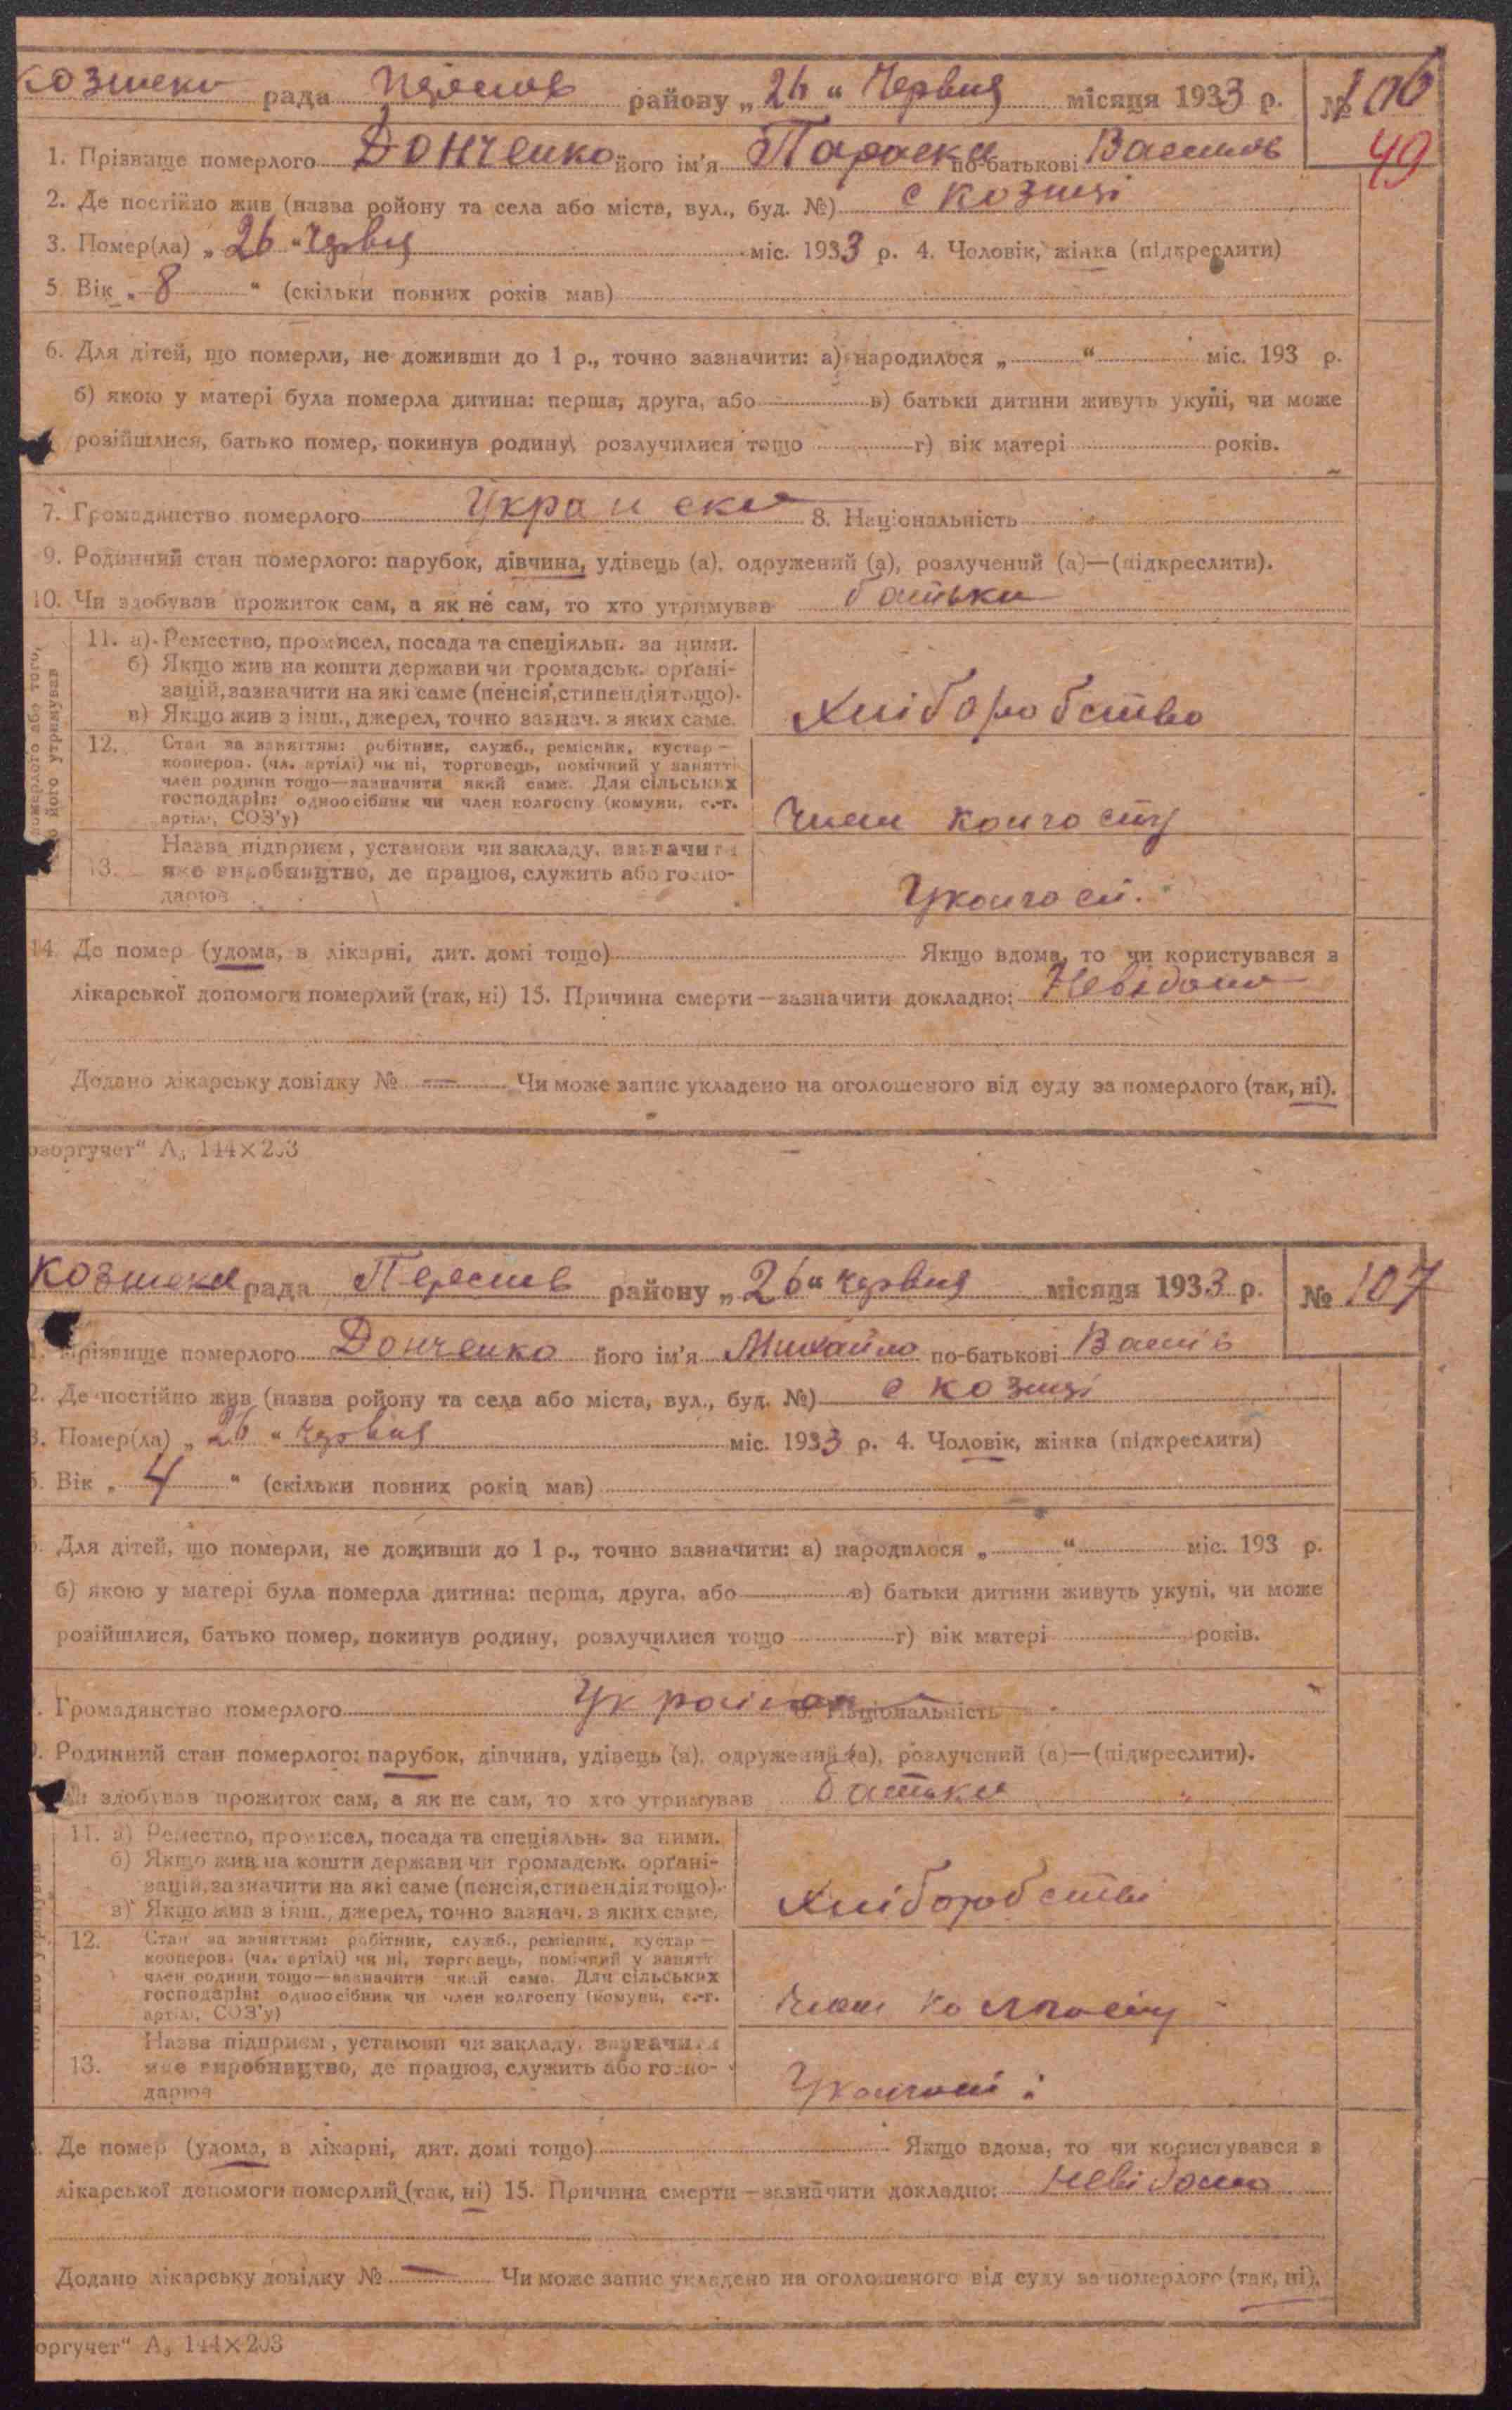 рада района „26“ Червня місяця 1933 р. № 106
49
1. Прізвище померлого Донченко його ім'я Параска по-батькові Васил
2. Де постійно жив (назва ройону та села або міста, вул., буд. №) с Козинці
3. Помер(ла) „26“ Червня міс. 1933 р. 4. Чоловік, жінка (підкреслити)
5. Вік „8“ (скільки повних років мав)
6. Для дітей, що померли, не доживши до 1 р., точно зазначити: а) народилося „ “ міс. 193 р.
б) якою у матері була померла дитина: перша, друга, або в) батьки дитини живуть укупі, чи може
розійшлися, батько помер, покинув родину, розлучилися тощо г) вік матері років.
7. Громадянство померлого 8. Національність
9. Родинний стан померлого: парубок, дівчина, удівець (а), одружений (а), розлучений (а)—(підкреслити).
10. Чи здобував прожиток сам, а як не сам, то хто утримував батьки
померлого або того,
його утримував
11. а) Ремество, промисел, посада та спеціяльн. за ними.
б) Якщо жив на кошти держави чи громадськ. орґані-
зацій, зазначити на які саме (пенсія, стипендія тощо).
в) Якщо жив з інш., джерел, точно зазнач. з яких саме.
Хліборобство
12. Стан за заняттям: робітник, служб., ремісник, кустар—
кооперов. (чл. артілі) чи ні, торговець, помічний у занятті
член родини тощо—зазначити який саме. Для сільських
господарів: одноосібник чи член колгоспу (комуни, с.-г.
артілі, СОЗ'у)
Член колгоспу
13. Назва підприєм, установи чи закладу, зазначити
яке виробництво, де працює, служить або госпо-
дарює
У колгосп.
14. Де помер (удома, в лікарні, дит. домі тощо) Якщо вдома, то чи користувався з
лікарської допомоги померлий (так, ні) 15. Причина смерти—зазначити докладно: Невідомо
Додано лікарську довідку № — Чи може запис укладено на оголошеного від суду за померлого (так, ні).
оргучет“ А₅ 144×203
рада района „26“ червня місяця 1933 р. № 107
1. Прізвище померлого Донченко його ім'я Михайло по-батькові
2. Де постійно жив (назва ройону та села або міста, вул., буд. №) с Козинці
3. Помер(ла) „26“ Червня міс. 1933 р. 4. Чоловік, жінка (підкреслити)
5. Вік „4“ (скільки повних років мав)
Для дітей, що померли, не доживши до 1 р., точно зазначити: а) народилося „ “ міс. 193 р.
б) якою у матері була померла дитина: перша, друга, або в) батьки дитини живуть укупі, чи може
розійшлися, батько помер, покинув родину, розлучилися тощо г) вік матері років.
Громадянство померлого 8. Національність
Родинний стан померлого: парубок, дівчина, удівець (а), одружений (а), розлучений (а)—(підкреслити).
Чи здобував прожиток сам, а як не сам, то хто утримував батьки
11. а) Ремество, промисел, посада та спеціяльн. за ними.
б) Якщо жив на кошти держави чи громадськ. орґані-
зацій, зазначити на які саме (пенсія, стипендія тощо).
в) Якщо жив з інш., джерел, точно зазнач. з яких саме.
12. Стан за заняттям: робітник, служб., ремісник, кустар—
кооперов. (чл. артілі) чи ні, торговець, помічний у занятті
член родини тощо—зазначити який саме. Для сільських
господарів: одноосібник чи член колгоспу (комуни, с.-г.
артілі, СОЗ'у)
Член колгоспу
13. Назва підприєм, установи чи закладу, зазначити
яке виробництво, де працює, служить або госпо-
дарює
Де помер (удома, в лікарні, дит. домі тощо) Якщо вдома, то чи користувався з
лікарської допомоги померлий (так, ні) 15. Причина смерти—зазначити докладно: Невідомо
Додано лікарську довідку № — Чи може запис укладено на оголошеного від суду за померлого (так, ні).
оргучет“ А₅ 144×203